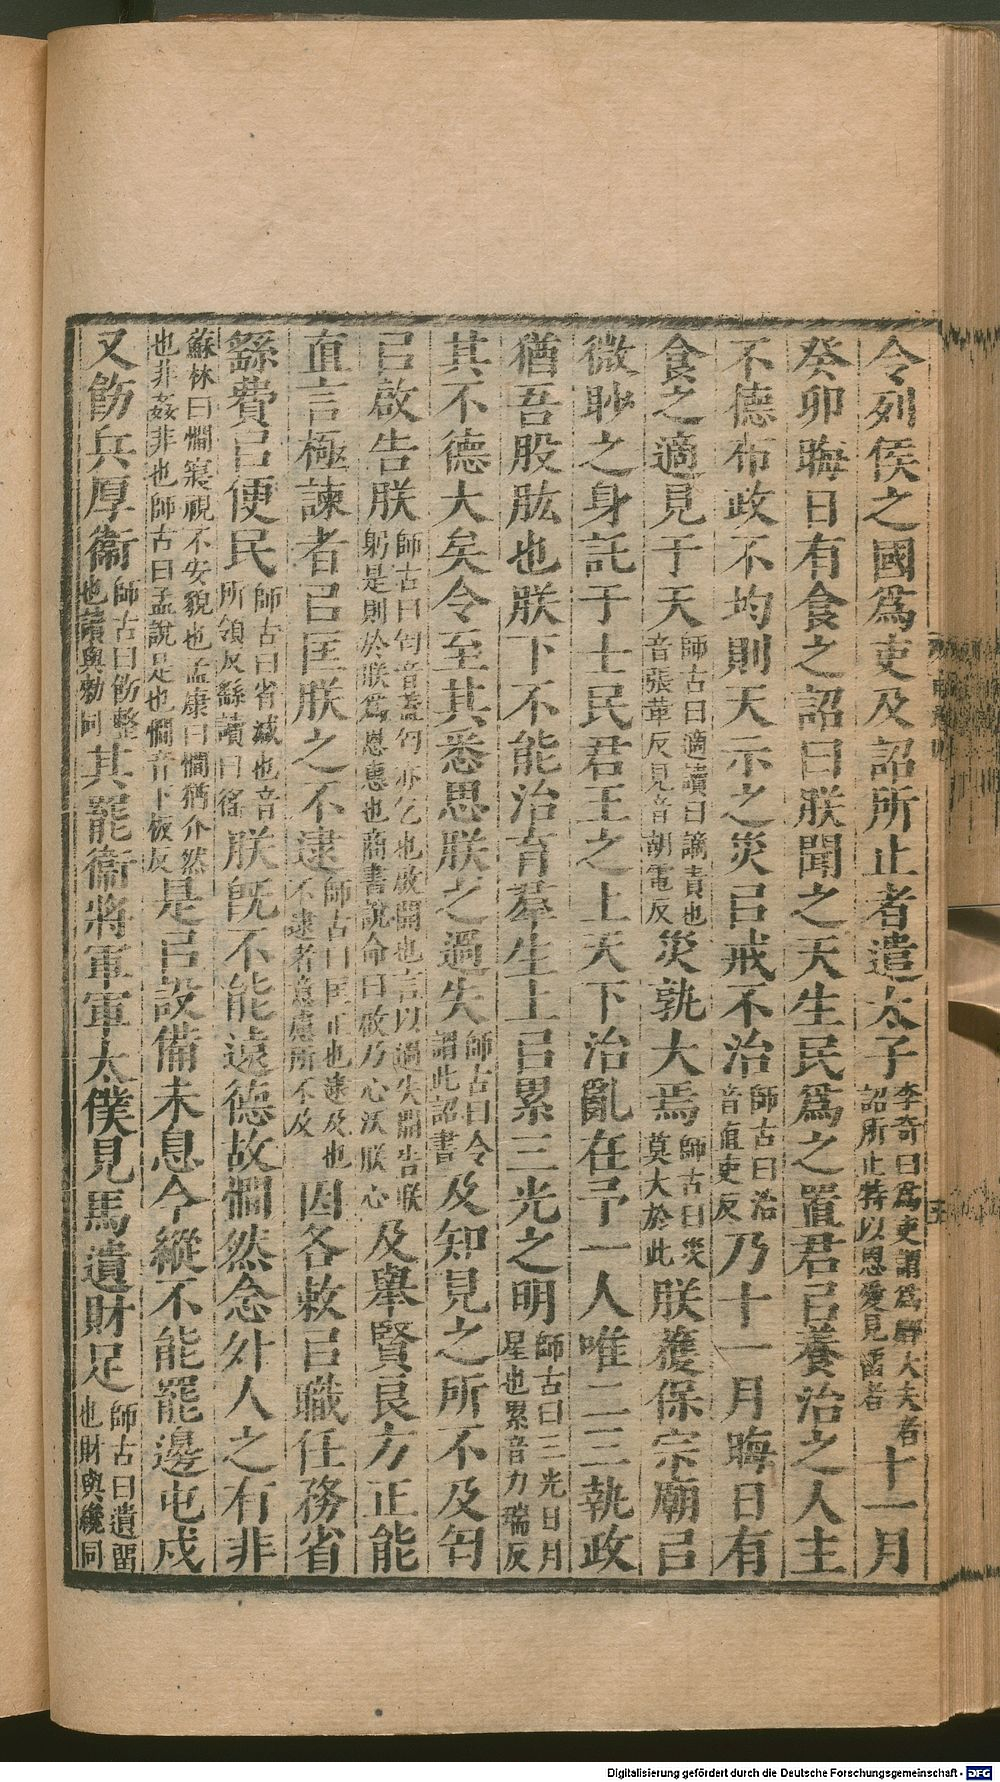 令列侯之國爲吏及詔所止者遣太子李奇曰爲吏謂爲卿大夫者詔所止特以恩愛見留者十一月
癸卯晦日有食之詔曰朕聞之天生民爲之置君㠯養治之人主
不德布政不均則天示之災㠯戒不治師古曰治音直吏反乃十一月晦日有
食之適見于天師古曰適讀曰謫責也音張革反見音胡電反災孰大焉師古曰災莫大於此朕獲保宗廟㠯
微眇之身託于士民君王之上天下治亂在予一人唯二三執政
猶吾股肱也朕下不能治育羣生上㠯累三光之明師古曰三光日月星也累音力瑞反
其不德大矣令至其悉思朕之過失師古曰令謂此詔書及知見之所不及匄
㠯啟告朕師古曰匄音蓋匄亦乞也啟開也言以過失開告朕躬是則於朕爲恩惠也商書說命曰啟乃心沃朕心及舉賢良方正能
直言極諫者㠯匡朕之不逮師古曰匡正也逮及也不逮者意慮所不及因各敕㠯職任務省
繇費㠯便民師古曰省減也音所領反繇讀曰徭朕旣不能遠德故憪然念外人之有非
蘇林曰憪寢視不安貌也孟康曰憪猶介然也非姦非也師古曰孟說是也憪音下板反是㠯設備未息今縱不能罷邊屯戍
又飭兵厚衞師古曰飭整也讀與勑同其罷衞將軍軍太僕見馬遺財足師古曰遺留也財與纔同
Digitalisierung gefördert durch die Deutsche Forschungsgemeinschaft - DFG